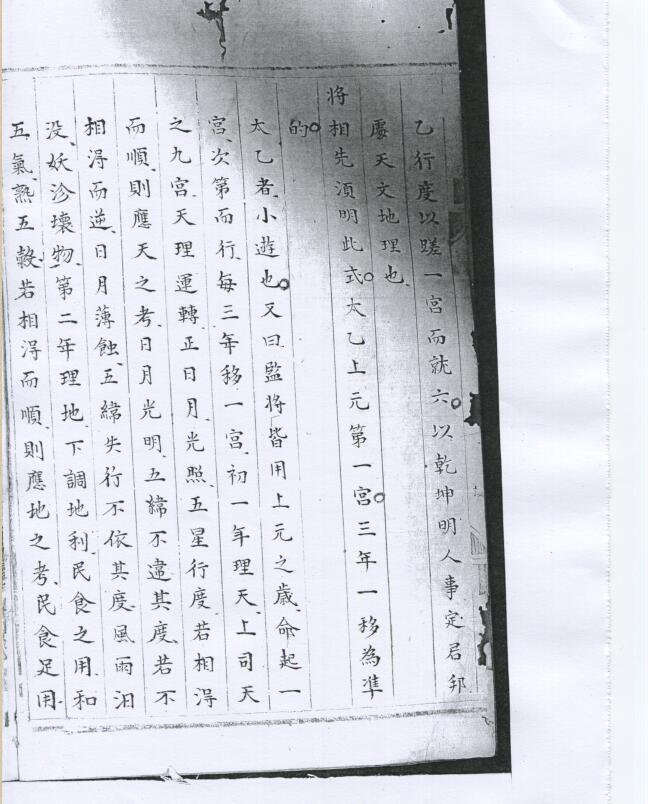 乙行度以蹉一宮而就六以乾坤明人事定君邦
㝡天文地理也
將相先須明此式太乙上元第一宮三年一移為準
的
太乙者小遊也又曰監將皆用上元之歲命起一
宮次第而行每三年移一宮初一年理天上司天
之九宮天理運轉正日月光照五星行度若相得
而順則應天之考日月光明五緯不違其度若不
相得而逆日月薄蝕五緯失行不依其度風雨汨
没妖沴壊物第二年理地下調地利民食之用和
五氣熟五穀若相得而順則應地之考民食足用